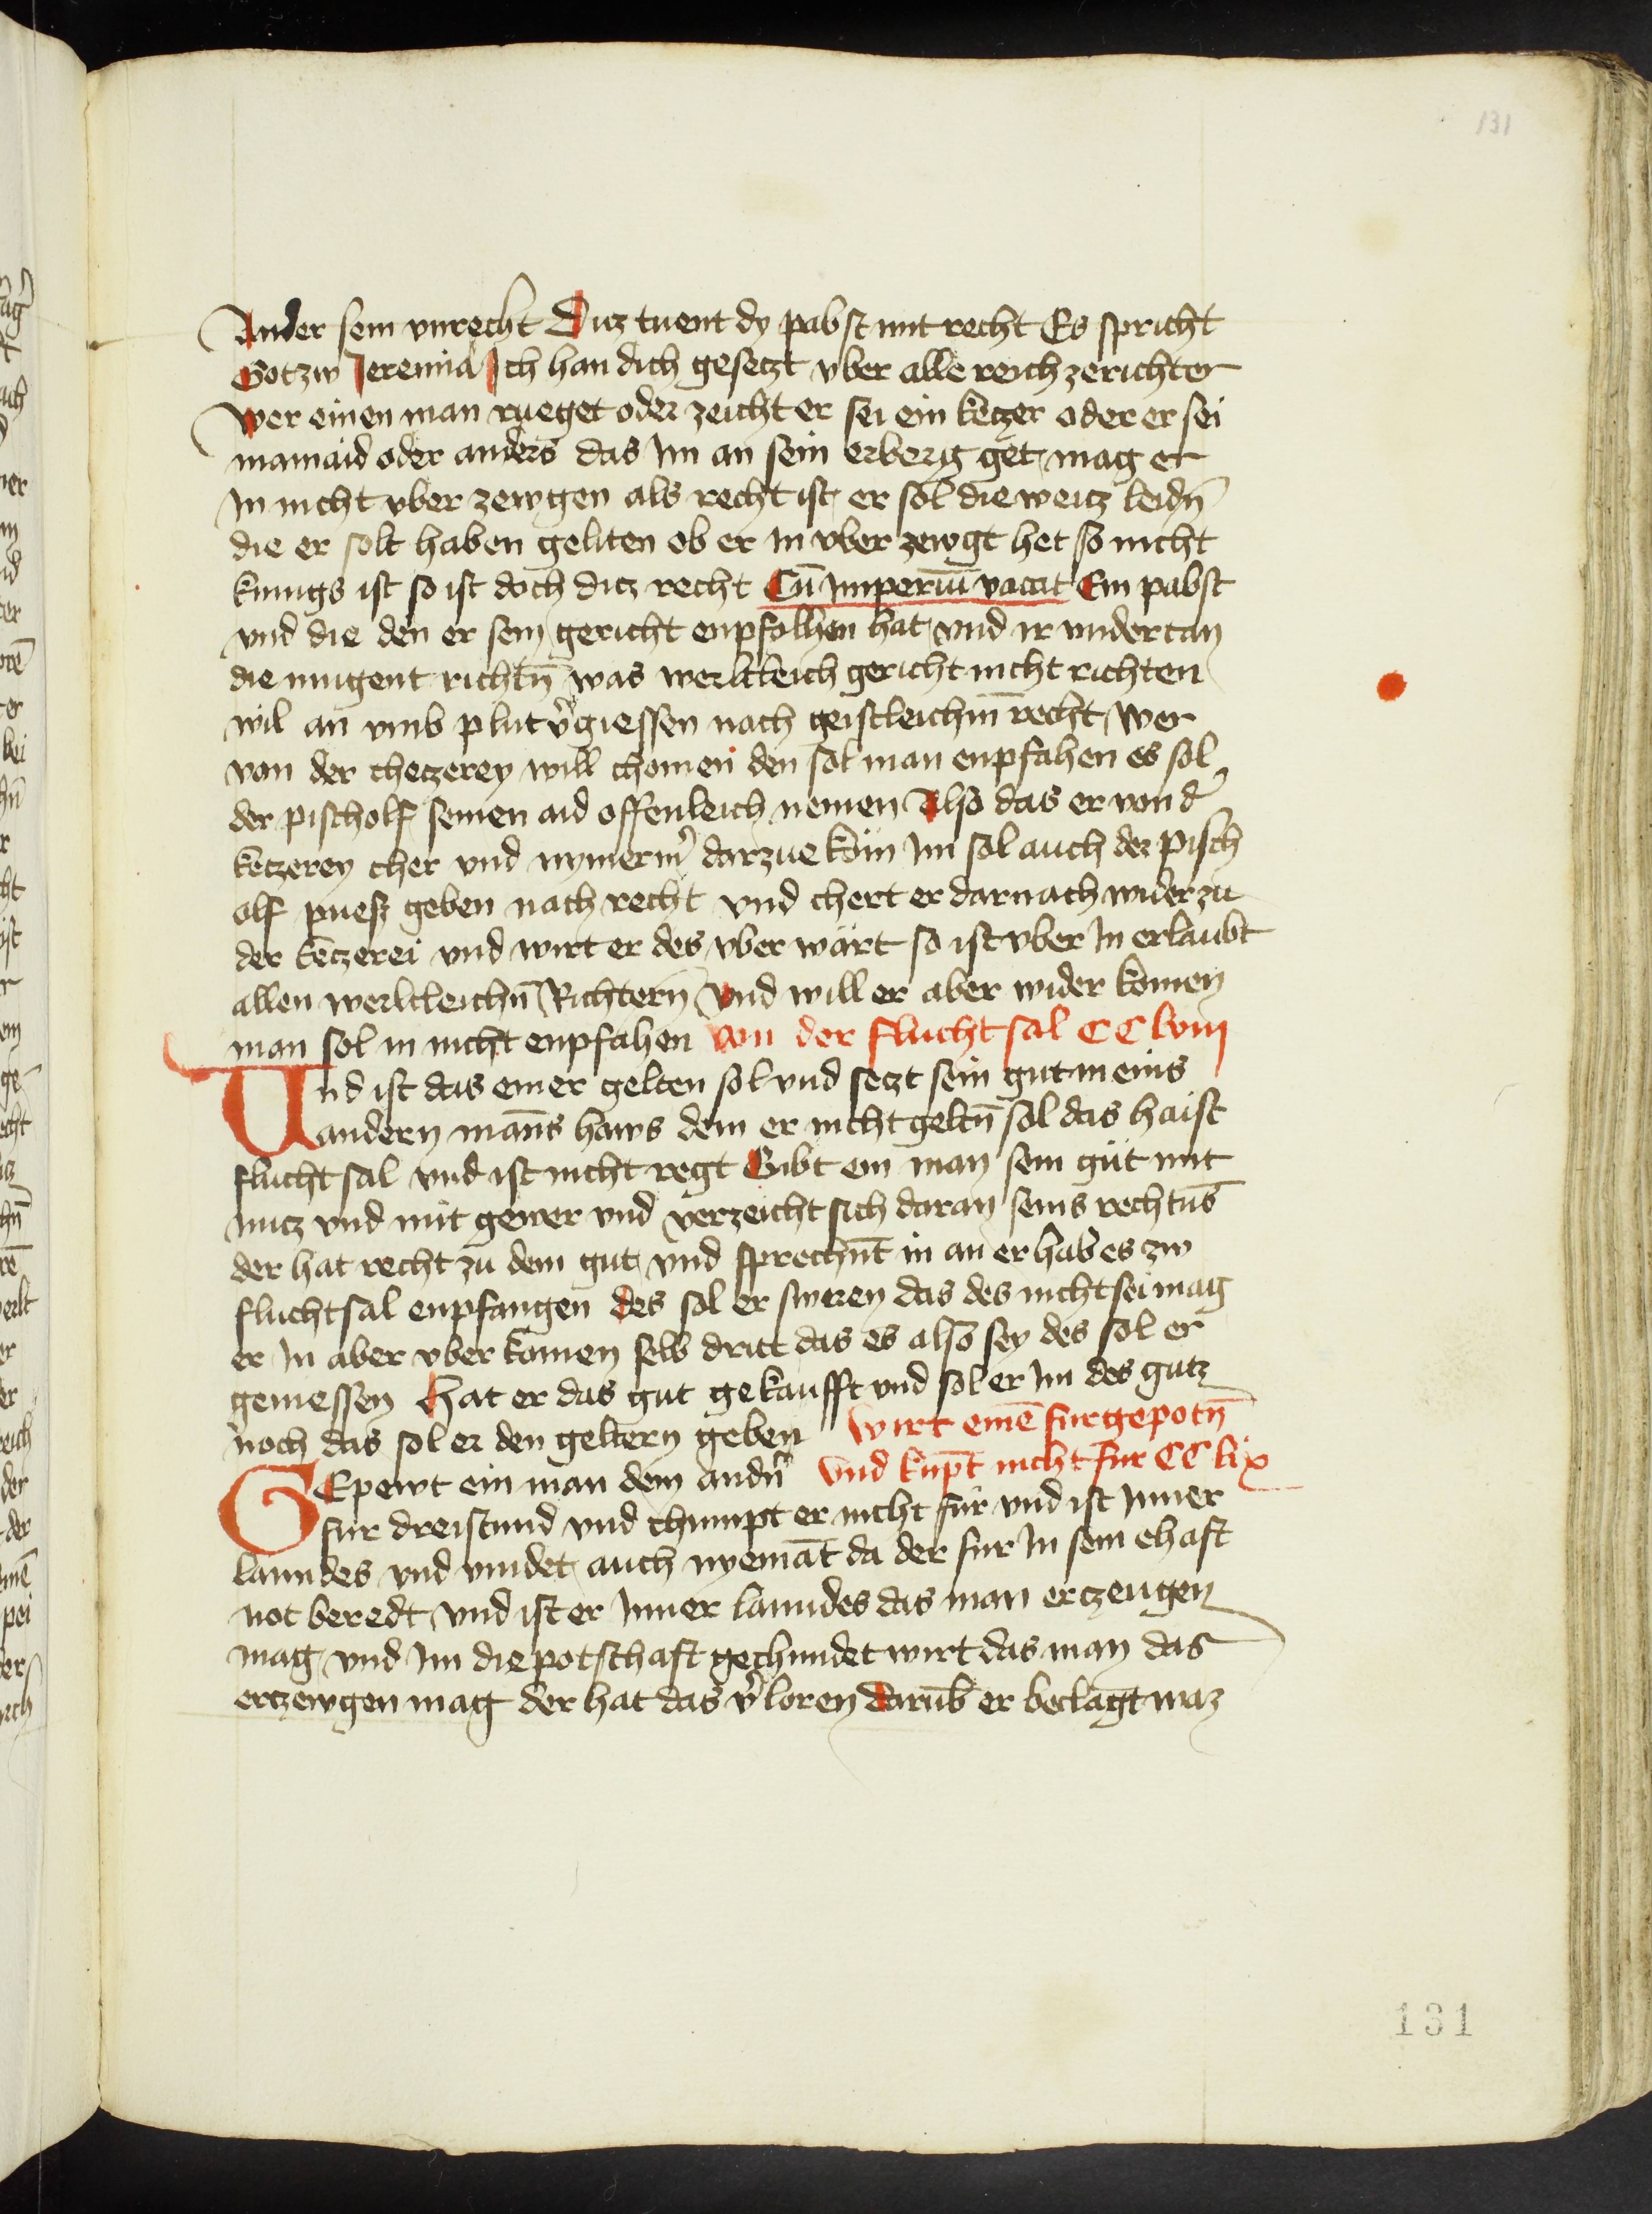 131
Ander sein vnrecht Ditz tuent dy pabst mit recht Es spricht
Got zw Jeremia Ich han dich gesetzt vber alle reich zerichter
Wer einen man rueget oder zeicht er sei ein ketzer oder er sei
mainaid oder anders das im an sein erberg get mag er
in nicht vber zewgen als recht ist er sol die weitz leidn̄
die er solt haben geliten ob er in vber zewgt het so nicht
kunigs ist so ist doch ditz recht Cū Imperiū vacat Ein pabst
vnd die den er sein gericht enpfolhen hat vnd ir vndertan
die mugent richtn̄ was werltleich gericht nicht richten
wil an vmb plut v̾giessen nach geistleichm̄ recht Wer
von der chetzerey will chomen den sol man enpfahen es sol
der pischolf seinen aid offenleich nemen Also das er von d̾
ketzerey cher vnd nymerm̾ darzue kōm im sol auch der pisch
olf puesz geben nach recht vnd chert er darnach wider zu
der ketzerei vnd wirt er des vber wärt so ist vber in erlaubt
allen werltleichn̄ Richtern Vnd will er aber wider komen
man sol in nicht enpfahen Von der flucht sal CClviij
Und ist das einer gelten sol vnd setzt sein gut in eins
andern mans haws dem er nicht geltn̄ sol das haist
flucht sal vnd ist nicht regt Gibt ein man sein gut mit
nutz vnd mit gewer vnd verzeicht sich daran seins rechtns
der hat recht zu dem gut vnd sprechnt in an er hab es zw
fluchtsal enpfangen des sol er sweren das des nicht sei mag
er in aber vber komen selb dritt das es also sey des sol er
geniessen Hat er das gut gekaufft vnd sol er im des gutz
noch das sol er den geltern geben Wirt einē furgepotn̄
vnd kupt nicht fur CClix
GEpewt ein man dem andn̾
fur dreistund vnd chumpt er nicht fur vnd ist inner
lanndes vnd vindet auch nyemāt da der fur in sein ehaft
not beredt vnd ist er inner lanndes das man erczeugen
mag vnd im die potschaft gechundet wirt das man das
erczewgen mag der hat das v̾loren darūb er beclagt waz
131